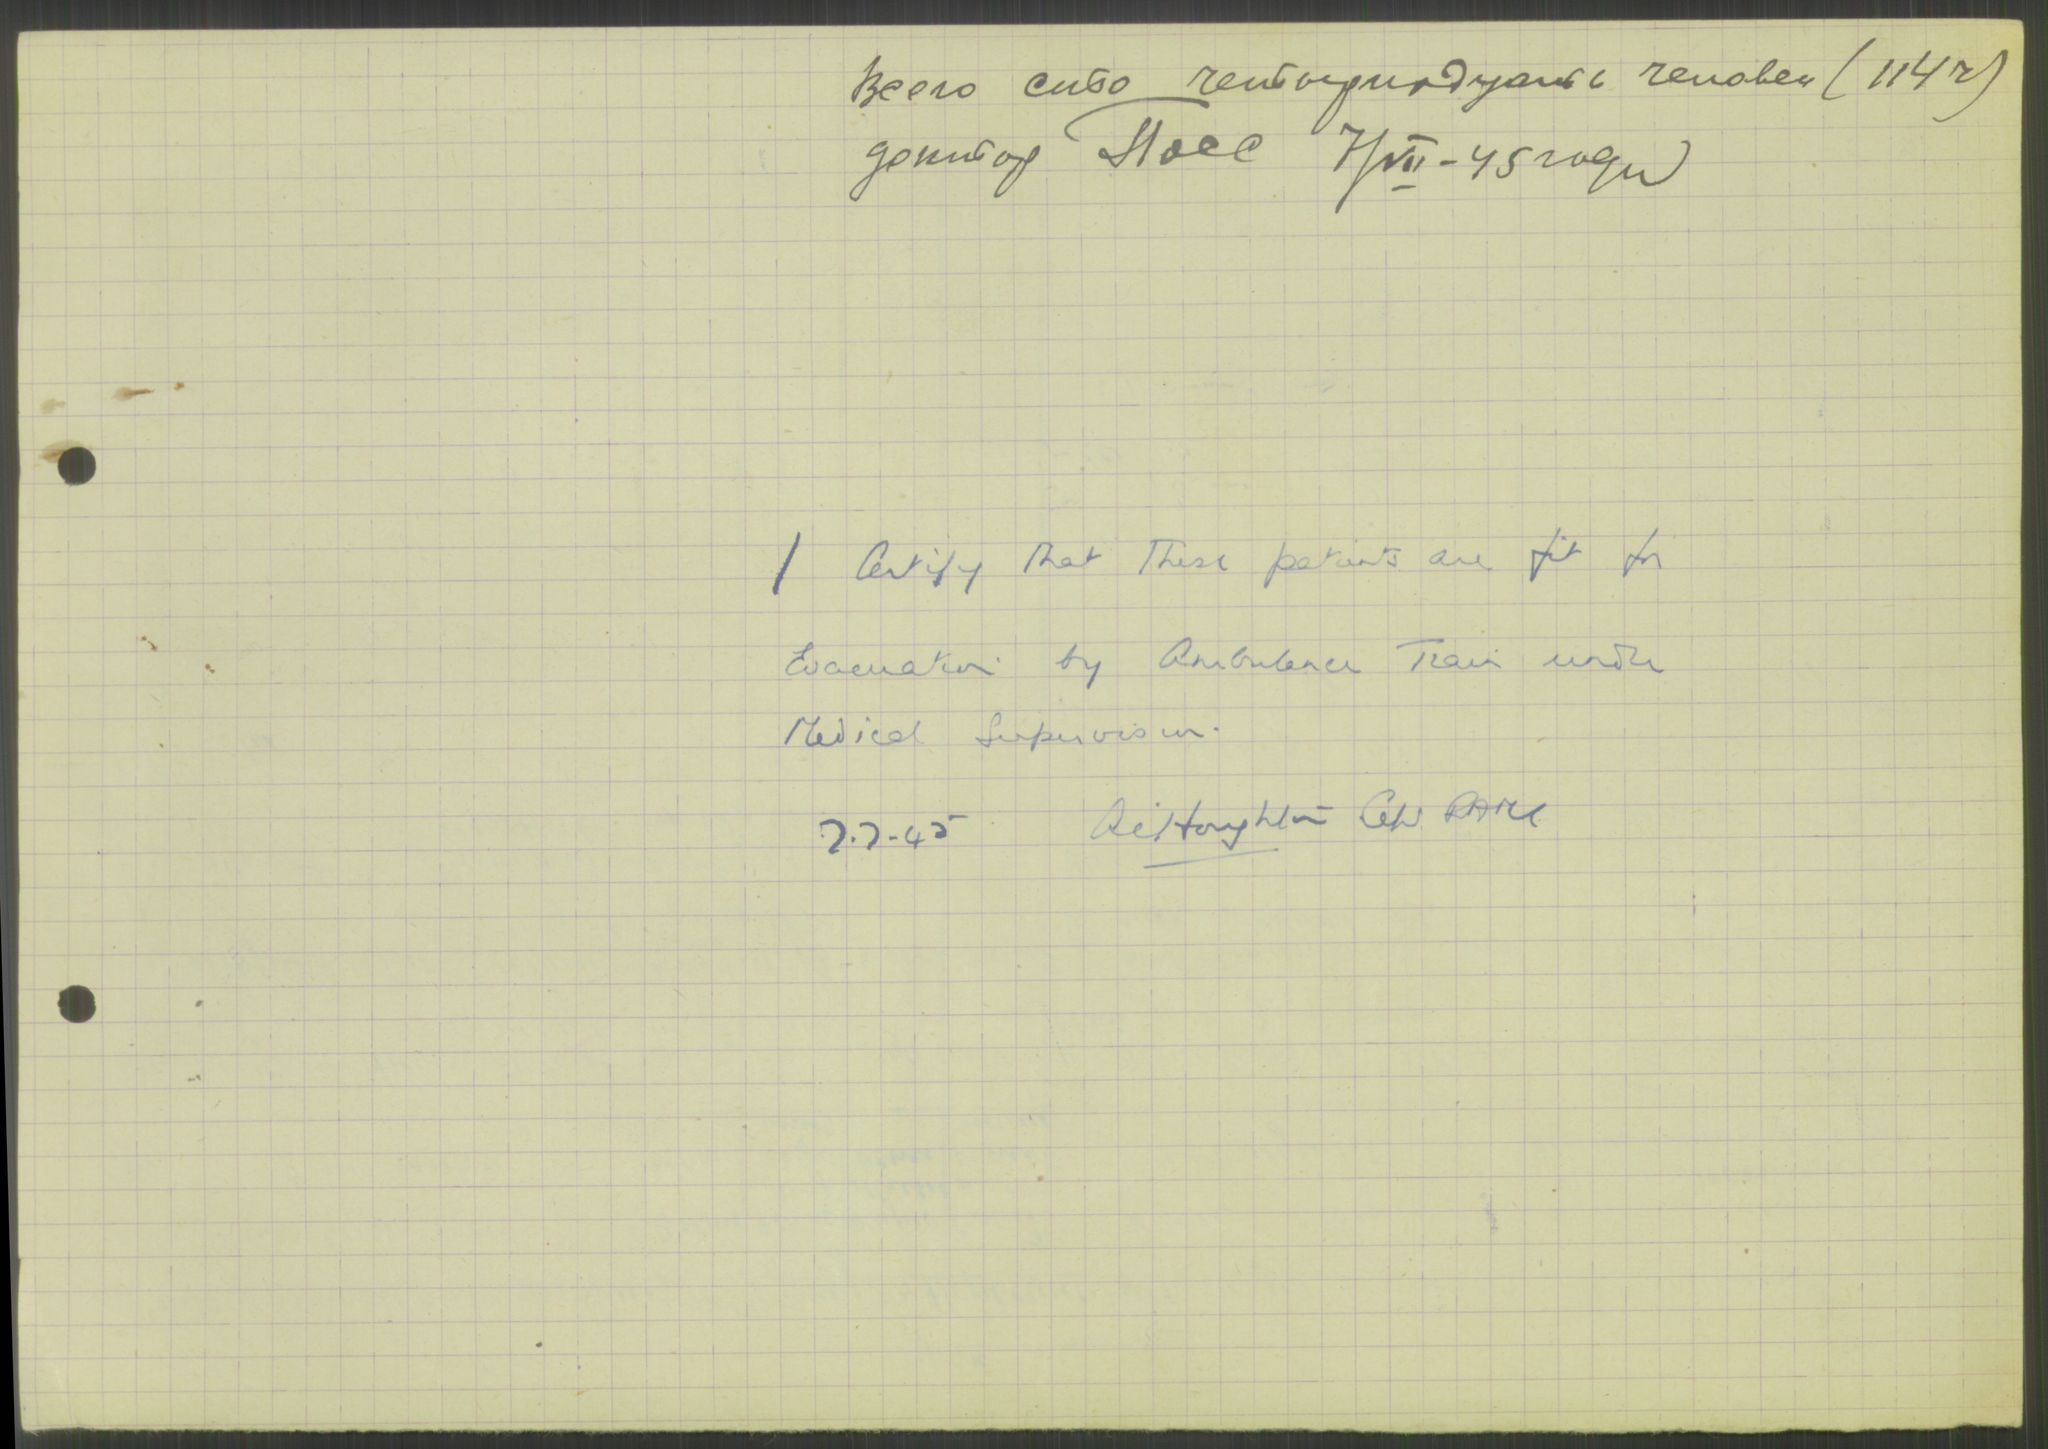 Всего сто четырнадцать человек (114 ч)
доктор Посс 7/VII-45 года
I Certify that these patients are fit for
Evacuation by Ambulance Train under
Medical Supervision.
7.7-45 Houghton Capt RAMC